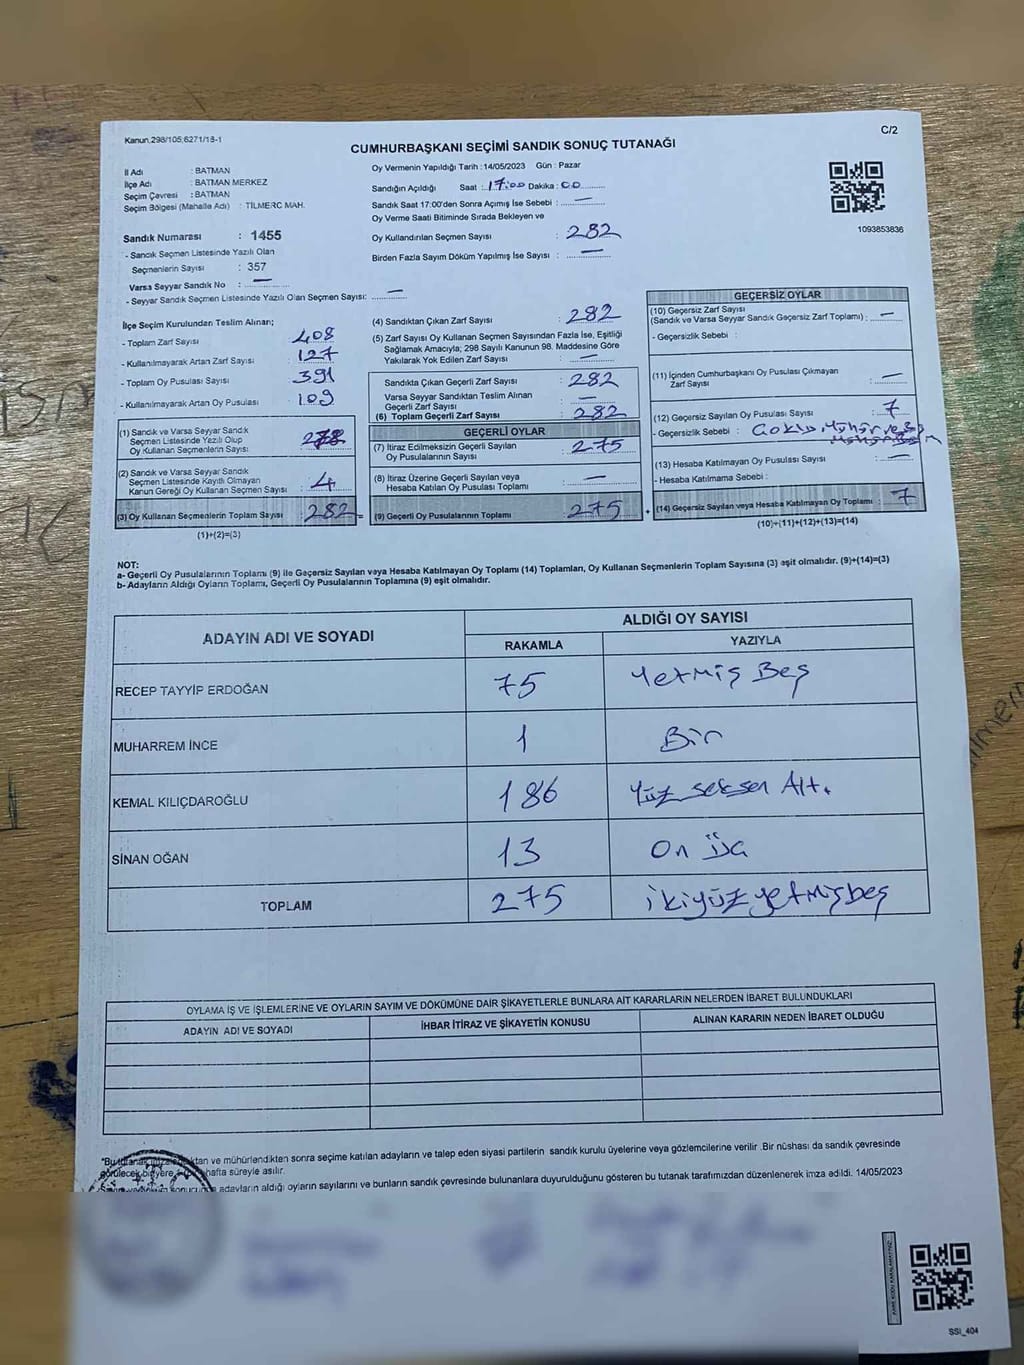 Kanun.298/105;6271/18-1
C/2
CUMHURBAŞKANI SEÇİMİ SANDIK SONUÇ TUTANAĞI
İl Adı : BATMAN
İlçe Adı : BATMAN MERKEZ
Seçim Çevresi : BATMAN
Seçim Bölgesi (Mahalle Adı) : TİLMERC MAH.
Sandık Numarası : 1455
- Sandık Seçmen Listesinde Yazılı Olan
Seçmenlerin Sayısı : 357
Varsa Seyyar Sandık No : —
- Seyyar Sandık Seçmen Listesinde Yazılı Olan Seçmen Sayısı: —
Oy Vermenin Yapıldığı Tarih : 14/05/2023 Gün : Pazar
Sandığın Açıldığı Saat : 17:00 Dakika : 00
Sandık Saat 17:00'den Sonra Açılmış İse Sebebi : —
Oy Verme Saati Bitiminde Sırada Bekleyen ve
Oy Kullandırılan Seçmen Sayısı : 282
Birden Fazla Sayım Döküm Yapılmış İse Sayısı : —
1093853836
İlçe Seçim Kurulundan Teslim Alınan;
- Toplam Zarf Sayısı : 408
- Kullanılmayarak Artan Zarf Sayısı : 127
- Toplam Oy Pusulası Sayısı : 391
- Kullanılmayarak Artan Oy Pusulası : 109
(1) Sandık ve Varsa Seyyar Sandık
Seçmen Listesinde Yazılı Olup
Oy Kullanan Seçmenlerin Sayısı : 278
(2) Sandık ve Varsa Seyyar Sandık
Seçmen Listesinde Kayıtlı Olmayan
Kanun Gereği Oy Kullanan Seçmen Sayısı : 4
(3) Oy Kullanan Seçmenlerin Toplam Sayısı : 282 =
(1)+(2)=(3)
(4) Sandıktan Çıkan Zarf Sayısı : 282
(5) Zarf Sayısı Oy Kullanan Seçmen Sayısından Fazla İse, Eşitliği
Sağlamak Amacıyla; 298 Sayılı Kanunun 98. Maddesine Göre
Yakılarak Yok Edilen Zarf Sayısı : —
Sandıkta Çıkan Geçerli Zarf Sayısı : 282
Varsa Seyyar Sandıktan Teslim Alınan
Geçerli Zarf Sayısı : —
(6) Toplam Geçerli Zarf Sayısı : 282
GEÇERLİ OYLAR
(7) İtiraz Edilmeksizin Geçerli Sayılan
Oy Pusulalarının Sayısı : 275
(8) İtiraz Üzerine Geçerli Sayılan veya
Hesaba Katılan Oy Pusulaları Toplamı : —
(9) Geçerli Oy Pusulalarının Toplamı : 275 +
GEÇERSİZ OYLAR
(10) Geçersiz Zarf Sayısı
(Sandık ve Varsa Seyyar Sandık Geçersiz Zarf Toplamı) : —
- Geçersizlik Sebebi :
(11) İçinden Cumhurbaşkanı Oy Pusulası Çıkmayan
Zarf Sayısı : —
(12) Geçersiz Sayılan Oy Pusulası Sayısı : 7
- Geçersizlik Sebebi :
(13) Hesaba Katılmayan Oy Pusulası Sayısı : —
- Hesaba Katılmama Sebebi :
(14) Geçersiz Sayılan veya Hesaba Katılmayan Oy Toplamı : 7
(10)+(11)+(12)+(13)=(14)
NOT:
a- Geçerli Oy Pusulalarının Toplamı (9) ile Geçersiz Sayılan veya Hesaba Katılmayan Oy Toplamı (14) Toplamları, Oy Kullanan Seçmenlerin Toplam Sayısına (3) eşit olmalıdır. (9)+(14)=(3)
b- Adayların Aldığı Oyların Toplamı, Geçerli Oy Pusulalarının Toplamına (9) eşit olmalıdır.
ADAYIN ADI VE SOYADI
ALDIĞI OY SAYISI
RAKAMLA YAZIYLA
RECEP TAYYİP ERDOĞAN 75 Yetmiş Beş
MUHARREM İNCE 1 Bir
KEMAL KILIÇDAROĞLU 186 Yüz seksen Altı
SİNAN OĞAN 13 On üç
TOPLAM 275 ikiyüzyetmişbeş
OYLAMA İŞ VE İŞLEMLERİNE VE OYLARIN SAYIM VE DÖKÜMÜNE DAİR ŞİKAYETLERLE BUNLARA AİT KARARLARIN NELERDEN İBARET BULUNDUKLARI
ADAYIN ADI VE SOYADI İHBAR İTİRAZ VE ŞİKAYETİN KONUSU ALINAN KARARIN NEDEN İBARET OLDUĞU
ve mühürlendikten sonra seçime katılan adayların ve talep eden siyasi partilerin sandık kurulu üyelerine veya gözlemcilerine verilir .Bir nüshası da sandık çevresinde
görülecek bir yere hafta süreyle asılır.
adayların aldığı oyların sayılarını ve bunların sandık çevresinde bulunanlara duyurulduğunu gösteren bu tutanak tarafımızdan düzenlenerek imza edildi. 14/05/2023
SSI_404